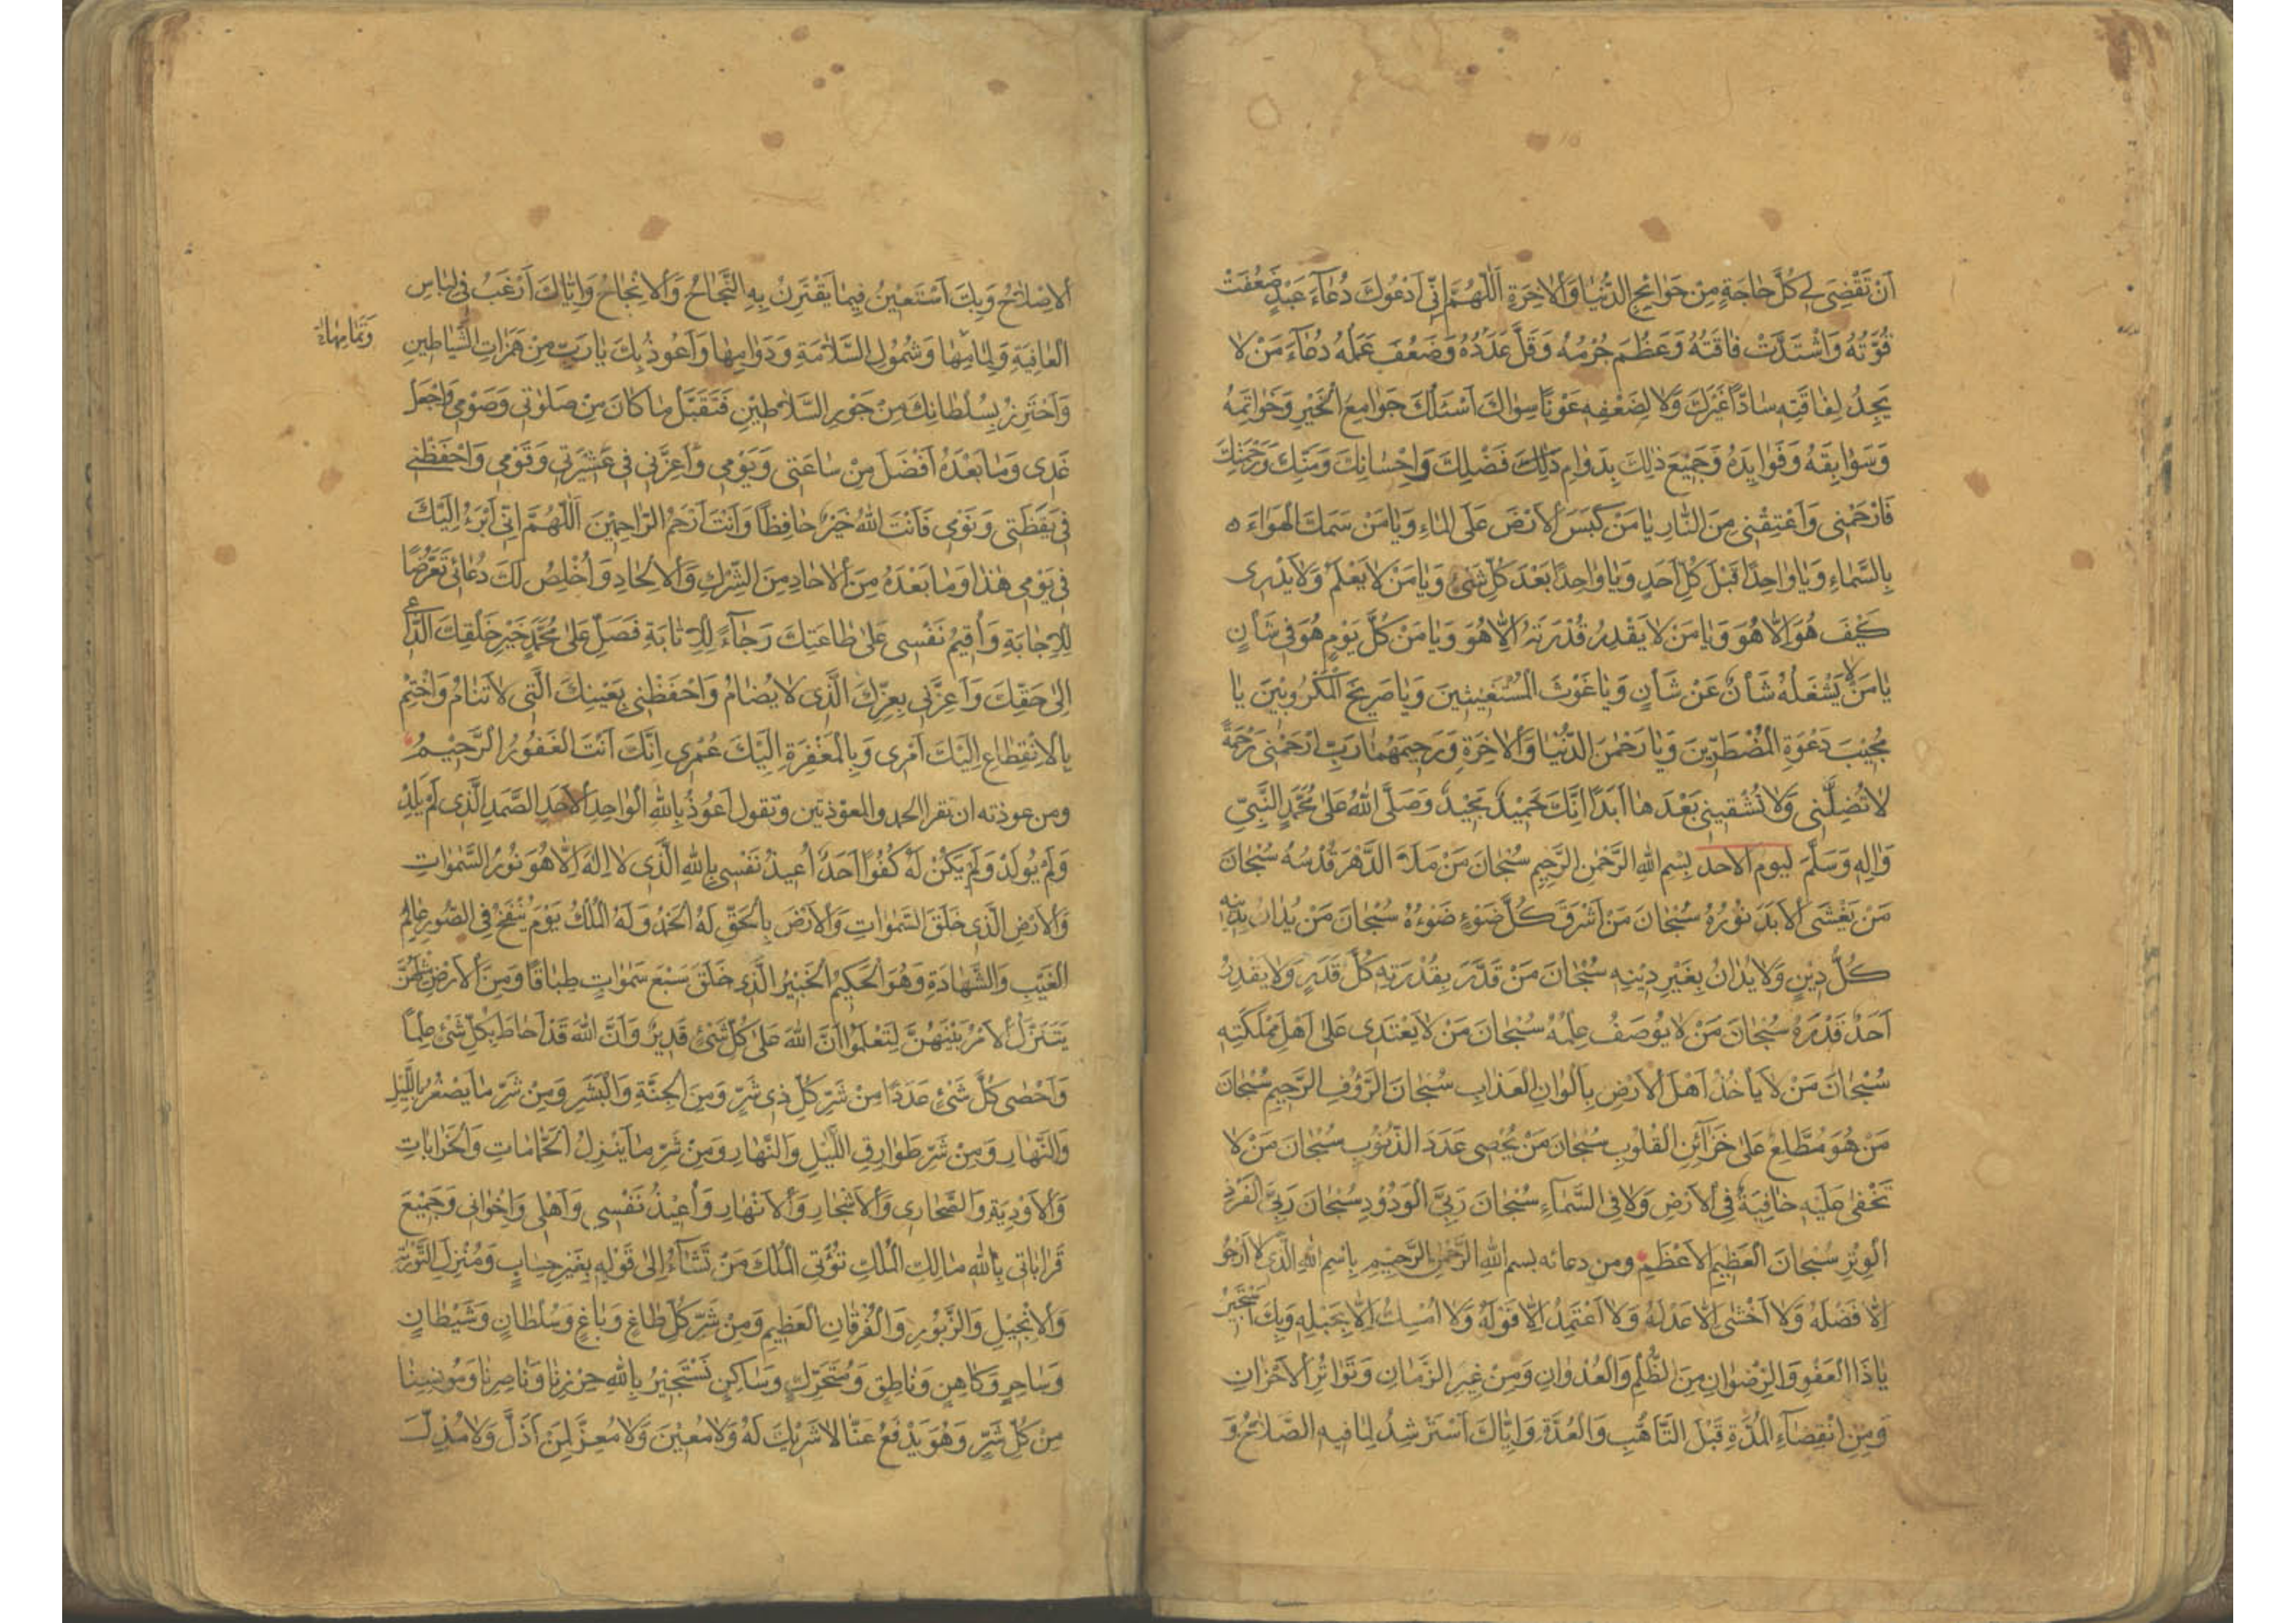 اَنْ تَقْضِىَ لِى كُلَّ حٰاجَةٍ مِنْ حَوٰائِجِ الدُّنْيٰا وَاْلاٰخِرَةِ اَللّٰهُمَّ اِنّى اَدْعُوكَ دُعٰآءَ عَبْدٍ ضَعُفَتْ
قُوَّتُهُ وَاشْتَدَّتْ فٰاقَتُهُ وَعَظُمَ جُرْمُهُ وَقَلَّ عَدَدُهُ وَضَعُفَ عَمَلُهُ دُعٰآءَ مَنْ لاٰ
يَجِدُ لِفٰاقَتِهِ سٰادّاً غَيْرَكَ وَلاٰ لِضَعْفِهِ عَوْناً سِوٰاكَ اَسْئَلُكَ جَوٰامِعَ الْخَيْرِ وَخَوٰاتِمَهُ
وَسَوٰابِقَهُ وَفَوٰايِدَهُ وَجَمِيْعَ ذٰلِكَ بِدَوٰامِ ذٰلِكَ فَضْلِكَ وَاِحْسٰانِكَ وَمَنِّكَ وَرَحْمَتِكَ
فَارْحَمْنِى وَاَعْتِقْنِى مِنَ النّٰارِ يٰا مَنْ كَبَسَ اْلاَرْضَ عَلَى الْمٰاءِ وَيٰا مَنْ سَمَكَ الْهَوٰاءَ
بِالسَّمٰاءِ وَيٰا وٰاحِداً قَبْلَ كُلِّ اَحَدٍ وَيٰا وٰاحِداً بَعْدَ كُلِّ شَىْءٍ وَيٰا مَنْ لاٰ يَعْلَمُ وَلاٰ يَدْرِى
كَيْفَ هُوَ اِلاّٰ هُوَ وَيٰا مَنْ لاٰ يَقْدِرُ قُدْرَتَهُ اِلاّٰ هُوَ وَيٰا مَنْ كُلَّ يَوْمٍ هُوَ فِى شَأْنٍ
يٰا مَنْ لاٰ يَشْغَلُهُ شَأْنٌ عَنْ شَأْنٍ وَيٰا غَوْثَ الْمُسْتَغِيْثِينَ وَيٰا صَرِيخَ الْمَكْرُوبِيْنَ يٰا
مُجِيْبَ دَعْوَةِ الْمُضْطَرِّينَ وَيٰا رَحْمٰنَ الدُّنْيٰا وَاْلاٰخِرَةِ وَرَحِيمَهُمٰا رَبِّ ارْحَمْنِى رَحْمَةً
لاٰ تُضِلَّنِى وَلاٰ تُشْقِينِى بَعْدَهٰا اَبَداً اِنَّكَ حَمِيْدٌ مَجِيْدٌ وَصَلَّى اللهُ عَلىٰ مُحَمَّدٍ النَّبِىِّ
وَاٰلِهِ وَسَلَّمَ ليوم الاحد بِسْمِ اللهِ الرَّحْمٰنِ الرَّحِيمِ سُبْحٰانَ مَنْ مَلَاَ الدَّهْرَ قُدْسُهُ سُبْحٰانَ
مَنْ يَغْشَى اْلاَبَدَ نُوْرُهُ سُبْحٰانَ مَنْ اَشْرَقَ كُلَّ ضَوْءٍ ضَوْءُهُ سُبْحٰانَ مَنْ يُدٰانُ بِدِينِهِ
كُلُّ دِيْنٍ وَلاٰ يُدٰانُ بِغَيْرِ دِيْنِهِ سُبْحٰانَ مَنْ قَدَّرَ بِقُدْرَتِهِ كُلَّ قَدَرٍ وَلاٰ يَقْدِرُ
اَحَدٌ قَدْرَهُ سُبْحٰانَ مَنْ لاٰ يُوْصَفُ عِلْمُهُ سُبْحٰانَ مَنْ لاٰ يَعْتَدِى عَلىٰ اَهْلِ مَمْلَكَتِهِ
سُبْحٰانَ مَنْ لاٰ يَأخُذُ اَهْلَ اْلاَرْضِ بِاَلْوٰانِ الْعَذٰابِ سُبْحٰانَ الرَّؤُفِ الرَّحِيمِ سُبْحٰانَ
مَنْ هُوَ مُطَّلِعٌ عَلىٰ خَزٰآئِنِ الْقُلُوْبِ سُبْحٰانَ مَنْ يُحْصِى عَدَدَ الذُّنُوْبِ سُبْحٰانَ مَنْ لاٰ
تَخْفىٰ عَلَيْهِ خٰافِيَةٌ فِى اْلاَرْضِ وَلاٰ فِى السَّمٰآءِ سُبْحٰانَ رَبِّىَ الْوَدُوْدِ سُبْحٰانَ رَبِّىَ الْفَرْدِ
الْوِتْرِ سُبْحٰانَ الْعَظِيمِ اْلاَعْظَمِ ومن دعائه بسم اللهِ الرَّحْمٰنِ الرَّحِيْمِ بِاسْمِ اللهِ الَّذِى لاٰ اَرْجُو
اِلاّٰ فَضْلَهُ وَلاٰ اَخْشىٰ اِلاّٰ عَدْلَهُ وَلاٰ اَعْتَمِدُ اِلاّٰ قَوْلَهُ وَلاٰ اُمْسِكُ اِلاّٰ بِحَبْلِهِ وَبِكَ اَسْتَجِيْرُ
يٰا ذَا الْعَفْوِ وَالرِّضْوٰانِ مِنَ الظُّلْمِ وَالْعُدْوٰانِ وَمِنْ غِيَرِ الزَّمٰانِ وَتَوٰاتُرِ اْلاَحْزٰانِ
وَمِنِ انْقِضٰآءِ الْمُدَّةِ قَبْلَ التَّاَهُّبِ وَالْعُدَّةِ وَاِيّٰاكَ اَسْتَرْشِدُ لِمٰا فيهِ الصَّلاٰحُ وَ
اْلاِصْلاٰحُ وَبِكَ اَسْتَعِيْنُ فِيمٰا يَقْتَرِنُ بِهِ النَّجٰاحُ وَاْلاِنْجٰاحُ وَاِيّٰاكَ اَرْغَبُ فِى لِبٰاسِ
الْعٰافِيَةِ وَتَمٰامِهٰا وَشُمُولِ السَّلاٰمَةِ وَدَوٰامِهٰا وَاَعُوذُ بِكَ يٰا رَبِّ مِنْ هَمَزٰاتِ الشَّيٰاطِينِ
وَتَمٰامِهٰا
وَاَحْتَرِزُ بِسُلْطٰانِكَ مِنْ جَوْرِ السَّلاٰطِيْنِ فَتَقَبَّلْ مٰا كٰانَ مِنْ صَلوٰتى وَصَوْمى وَاجْعَلْ
غَدِى وَمٰا بَعْدَهُ اَفْضَلَ مِنْ سٰاعَتى وَيَوْمِى وَاَعِزَّنى فى عَشِيْرَتِى وَقَوْمِى وَاحْفَظْنى
فى يَقْظَتِى وَنَوْمِى فَاَنْتَ اللهُ خَيْرٌ حٰافِظاً وَاَنْتَ اَرْحَمُ الرّٰاحِمِيْنَ اَللّٰهُمَّ اِنّى اَبْرَءُ اِلَيْكَ
فى يَوْمِى هٰذٰا وَمٰا بَعْدَهُ مِنَ اْلاٰحٰادِ مِنَ الشِّرْكِ وَاْلاِلْحٰادِ وَاُخْلِصُ لَكَ دُعٰائى تَعَرُّضاً
لِلْاِجٰابَةِ وَاُقِيمُ نَفْسِى عَلىٰ طٰاعَتِكَ رَجٰآءً لِلْاِثٰابَةِ فَصَلِّ عَلىٰ مُحَمَّدٍ خَيْرِ خَلْقِكَ الدّٰاعِى
اِلىٰ حَقِّكَ وَاَعِزَّنى بِعِزِّكَ الَّذِى لاٰ يُضٰامُ وَاحْفَظْنِى بِعَيْنِكَ الَّتِى لاٰ تَنٰامُ وَاخْتِمْ
بِاْلاِنْقِطٰاعِ اِلَيْكَ اَمْرِى وَبِالْمَغْفِرَةِ اِلَيْكَ عُمْرِى اِنَّكَ اَنْتَ الْغَفُوْرُ الرَّحِيْمُ
ومن عوذته ان تقرا الحمد والمعوّذتين وتقول اَعُوذُ بِاللهِ الْوٰاحِدِ اْلاَحَدِ الصَّمَدِ الَّذِى لَمْ يَلِدْ
وَلَمْ يُولَدْ وَلَمْ يَكُنْ لَهُ كُفُواً اَحَدٌ اُعِيذُ نَفْسِى بِاللهِ الَّذِى لاٰ اِلٰهَ اِلاّٰ هُوَ نُوْرُ السَّمٰوٰاتِ
وَاْلاَرْضِ الَّذِى خَلَقَ السَّمٰوٰاتِ وَاْلاَرْضَ بِالْحَقِّ لَهُ الْحَمْدُ وَلَهُ الْمُلْكُ يَوْمَ يُنْفَخُ فِى الصُّورِ عٰالِمُ
الْغَيْبِ وَالشَّهٰادَةِ وَهُوَ الْحَكِيْمُ الْخَبِيْرُ الَّذِى خَلَقَ سَبْعَ سَمٰوٰاتٍ طِبٰاقاً وَمِنَ اْلاَرْضِ مِثْلَهُنَّ
يَتَنَزَّلُ اْلاَمْرُ بَيْنَهُنَّ لِتَعْلَمُوْا اَنَّ اللهَ عَلىٰ كُلِّ شَىْءٍ قَدِيْرٌ وَاَنَّ اللهَ قَدْ اَحٰاطَ بِكُلِّ شَىْءٍ عِلْماً
وَاَحْصىٰ كُلَّ شَىْءٍ عَدَداً مِنْ شَرِّ كُلِّ ذِى شَرٍّ وَمِنَ الْجِنَّةِ وَالْبَشَرِ وَمِنْ شَرِّ مٰا يَصْغُرُ بِاللَّيْلِ
وَالنَّهٰارِ وَمِنْ شَرِّ طَوٰارِقِ اللَّيْلِ وَالنَّهٰارِ وَمِنْ شَرِّ مٰا يَنْزِلُ الْحَمّٰامٰاتِ وَالْخَرٰابٰاتِ
وَاْلاَوْدِيَةِ وَالصَّحٰارِى وَاْلاَشْجٰارِ وَاْلاَنْهٰارِ وَاُعِيْذُ نَفْسِى وَاَهْلِى وَاِخْوٰانِى وَجَمِيْعَ
قَرٰابٰاتى بِاللهِ مٰالِكِ الْمُلْكِ تُؤْتِى الْمُلْكَ مَنْ تَشٰآءُ اِلىٰ قَوْلِهِ بِغَيْرِ حِسٰابٍ وَمُنْزِلِ التَّوْرٰيةِ
وَاْلاِنْجِيْلِ وَالزَّبُوْرِ وَالْفُرْقٰانِ الْعَظِيمِ وَمِنْ شَرِّ كُلِّ طٰاغٍ وَبٰاغٍ وَسُلْطٰانٍ وَشَيْطٰانٍ
وَسٰاحِرٍ وَكٰاهِنٍ وَنٰاطِقٍ وَمُتَحَرِّكٍ وَسٰاكِنٍ نَسْتَجِيْرُ بِاللهِ حِرْزِنٰا وَنٰاصِرِنٰا وَمُونِسِنٰا
مِنْ كُلِّ شَرٍّ وَهُوَ يَدْفَعُ عَنّٰا لاٰ شَرِيْكَ لَهُ وَلاٰ مُعِيْنَ وَلاٰ مُعِزَّ لِمَنْ اَذَلَّ وَلاٰ مُذِلَّ